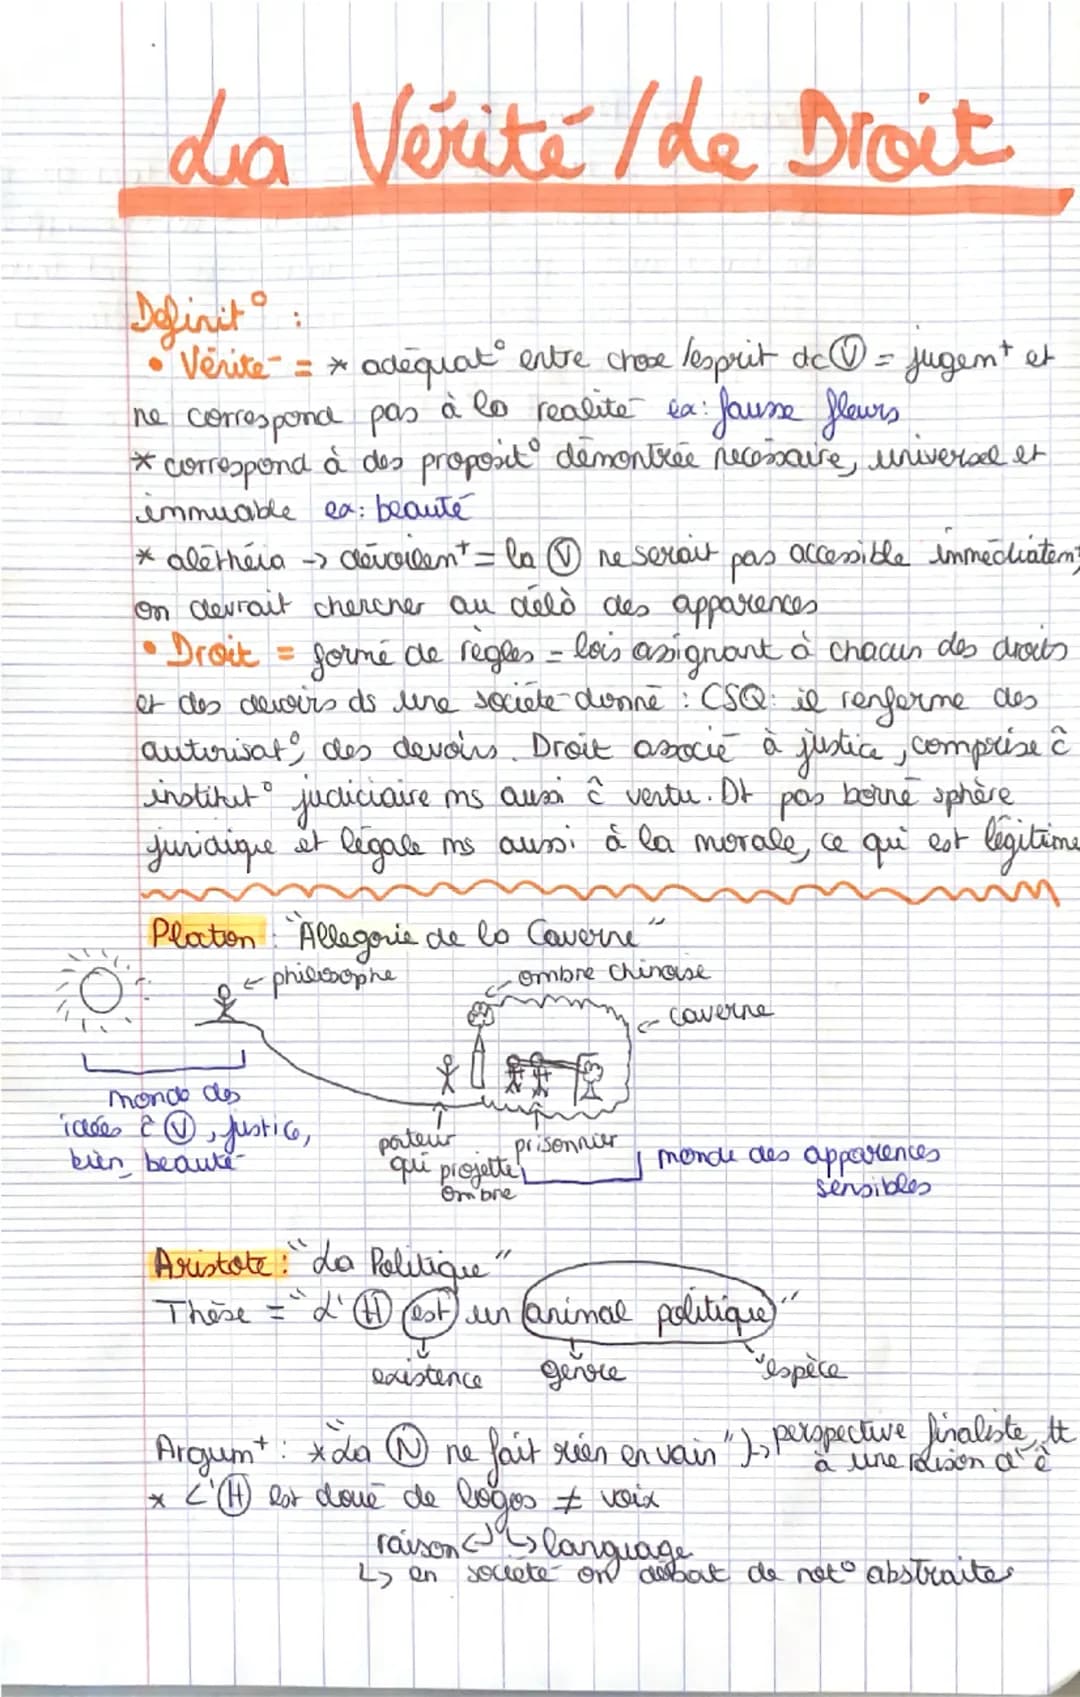 La Vérité / Le Droit
Definit° :
• Vérité = * adéquat° entre chose / esprit dc Ⓥ = jugem+ et
ne correspond pas à la realité ex: fausse fleurs
* correspond à des proposit° démontrée necessaire, universel et
immuable ex: beauté
* alétheia -> dévoilem+ = la Ⓥ ne serait pas accessible immédiatem+
on devrait chercher au délà des apparences
• Droit = formé de règles = lois assignant à chacun des droits
et des devoirs ds une société donné : CSQ: il renferme des
autorisat°, des devoirs. Droit associé à justice, comprise ĉ
institut° judiciaire ms aussi ĉ vertu. Dt pas borné sphère
juridique et légale ms aussi à la morale, ce qui est légitime
Platon : "Allegorie de la Caverne"
philosophe
ombre chinoise
caverne
monde des
idées ĉ Ⓥ, justice,
bien, beauté
porteur
qui projette
ombre
prisonnier
monde des apparences
sensibles
Aristote : "La Politique"
Thèse = "L'Ⓗ est un animal politique"
existence genre espèce
Argum+ : * "La Ⓝ ne fait rien en vain" } -> perspective finaliste, tt
à une raison d'ê
* L'Ⓗ est doué de logos ≠ voix
raison <-> language
↳ en société on débat de not° abstraites